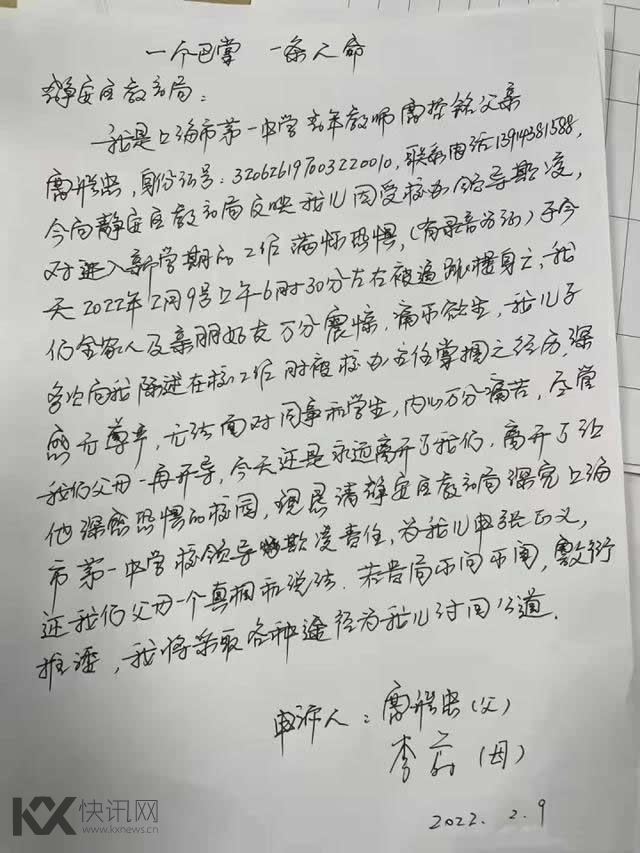 一个巴掌 一条人命
静安区教育局：
我是上海市第一中学青年教师 父亲
，身份证号：320626197003220010，联系电话13914381588，
今向静安区教育局反映我儿因受校办领导欺凌，
对进入新学期的工作满怀恐惧，（有录音为证）于今
天2022年2月9号上午6时30分左右被逼跳楼身亡，我
们全家人及亲朋好友万分震惊，痛不欲生，我儿子
多次向我陈述在校工作时被校办主任掌掴之经历，深
感无尊严，无法面对同事和学生，内心万分痛苦，尽管
我们父母一再开导，今天还是永远离开了我们，离开了让
他深感恐惧的校园，现恳请静安区教育局深究上海
市第一中学校领导欺凌责任，为我儿申张正义，
还我们父母一个真相和说法．若贵局不问不闻，敷衍
推诿，我将采取各种途径为我儿讨回公道．
申诉人： （父）
李 （母）
2022．2．9
KX 快讯网
www.kxnews.cn